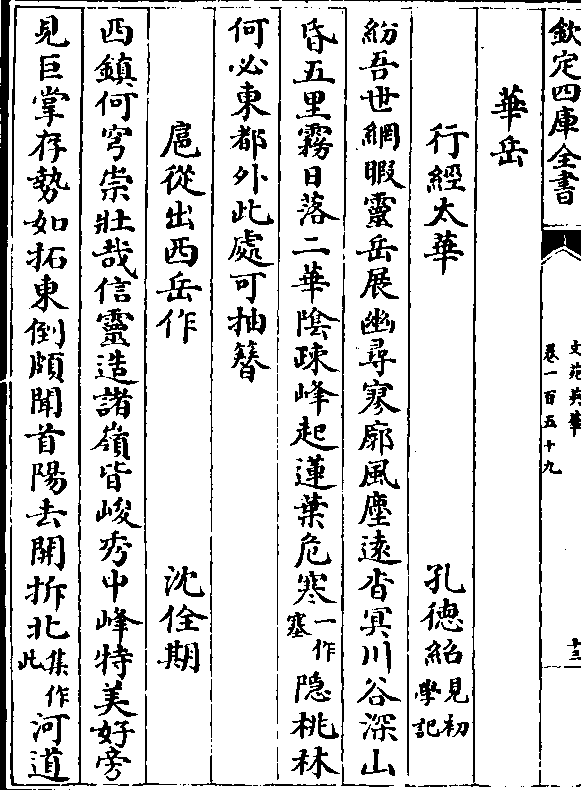 欽定四庫全書
文苑英華
卷一百五十九
十三
華岳
行經太華 孔德紹見初學記
紛吾世網暇靈岳展幽尋寥廓風塵遠杳冥川谷深山
昏五里霧日落二華陰疎峰起蓮葉危寒一作塞隠桃林
何必東都外此處可抽簪
扈從出西岳作 沈佺期
西鎮何穹崇壯哉信靈造諸嶺皆峻秀中峰特美好旁
見巨掌存勢如拓東倒頗聞首陽去開拆北集作此河道